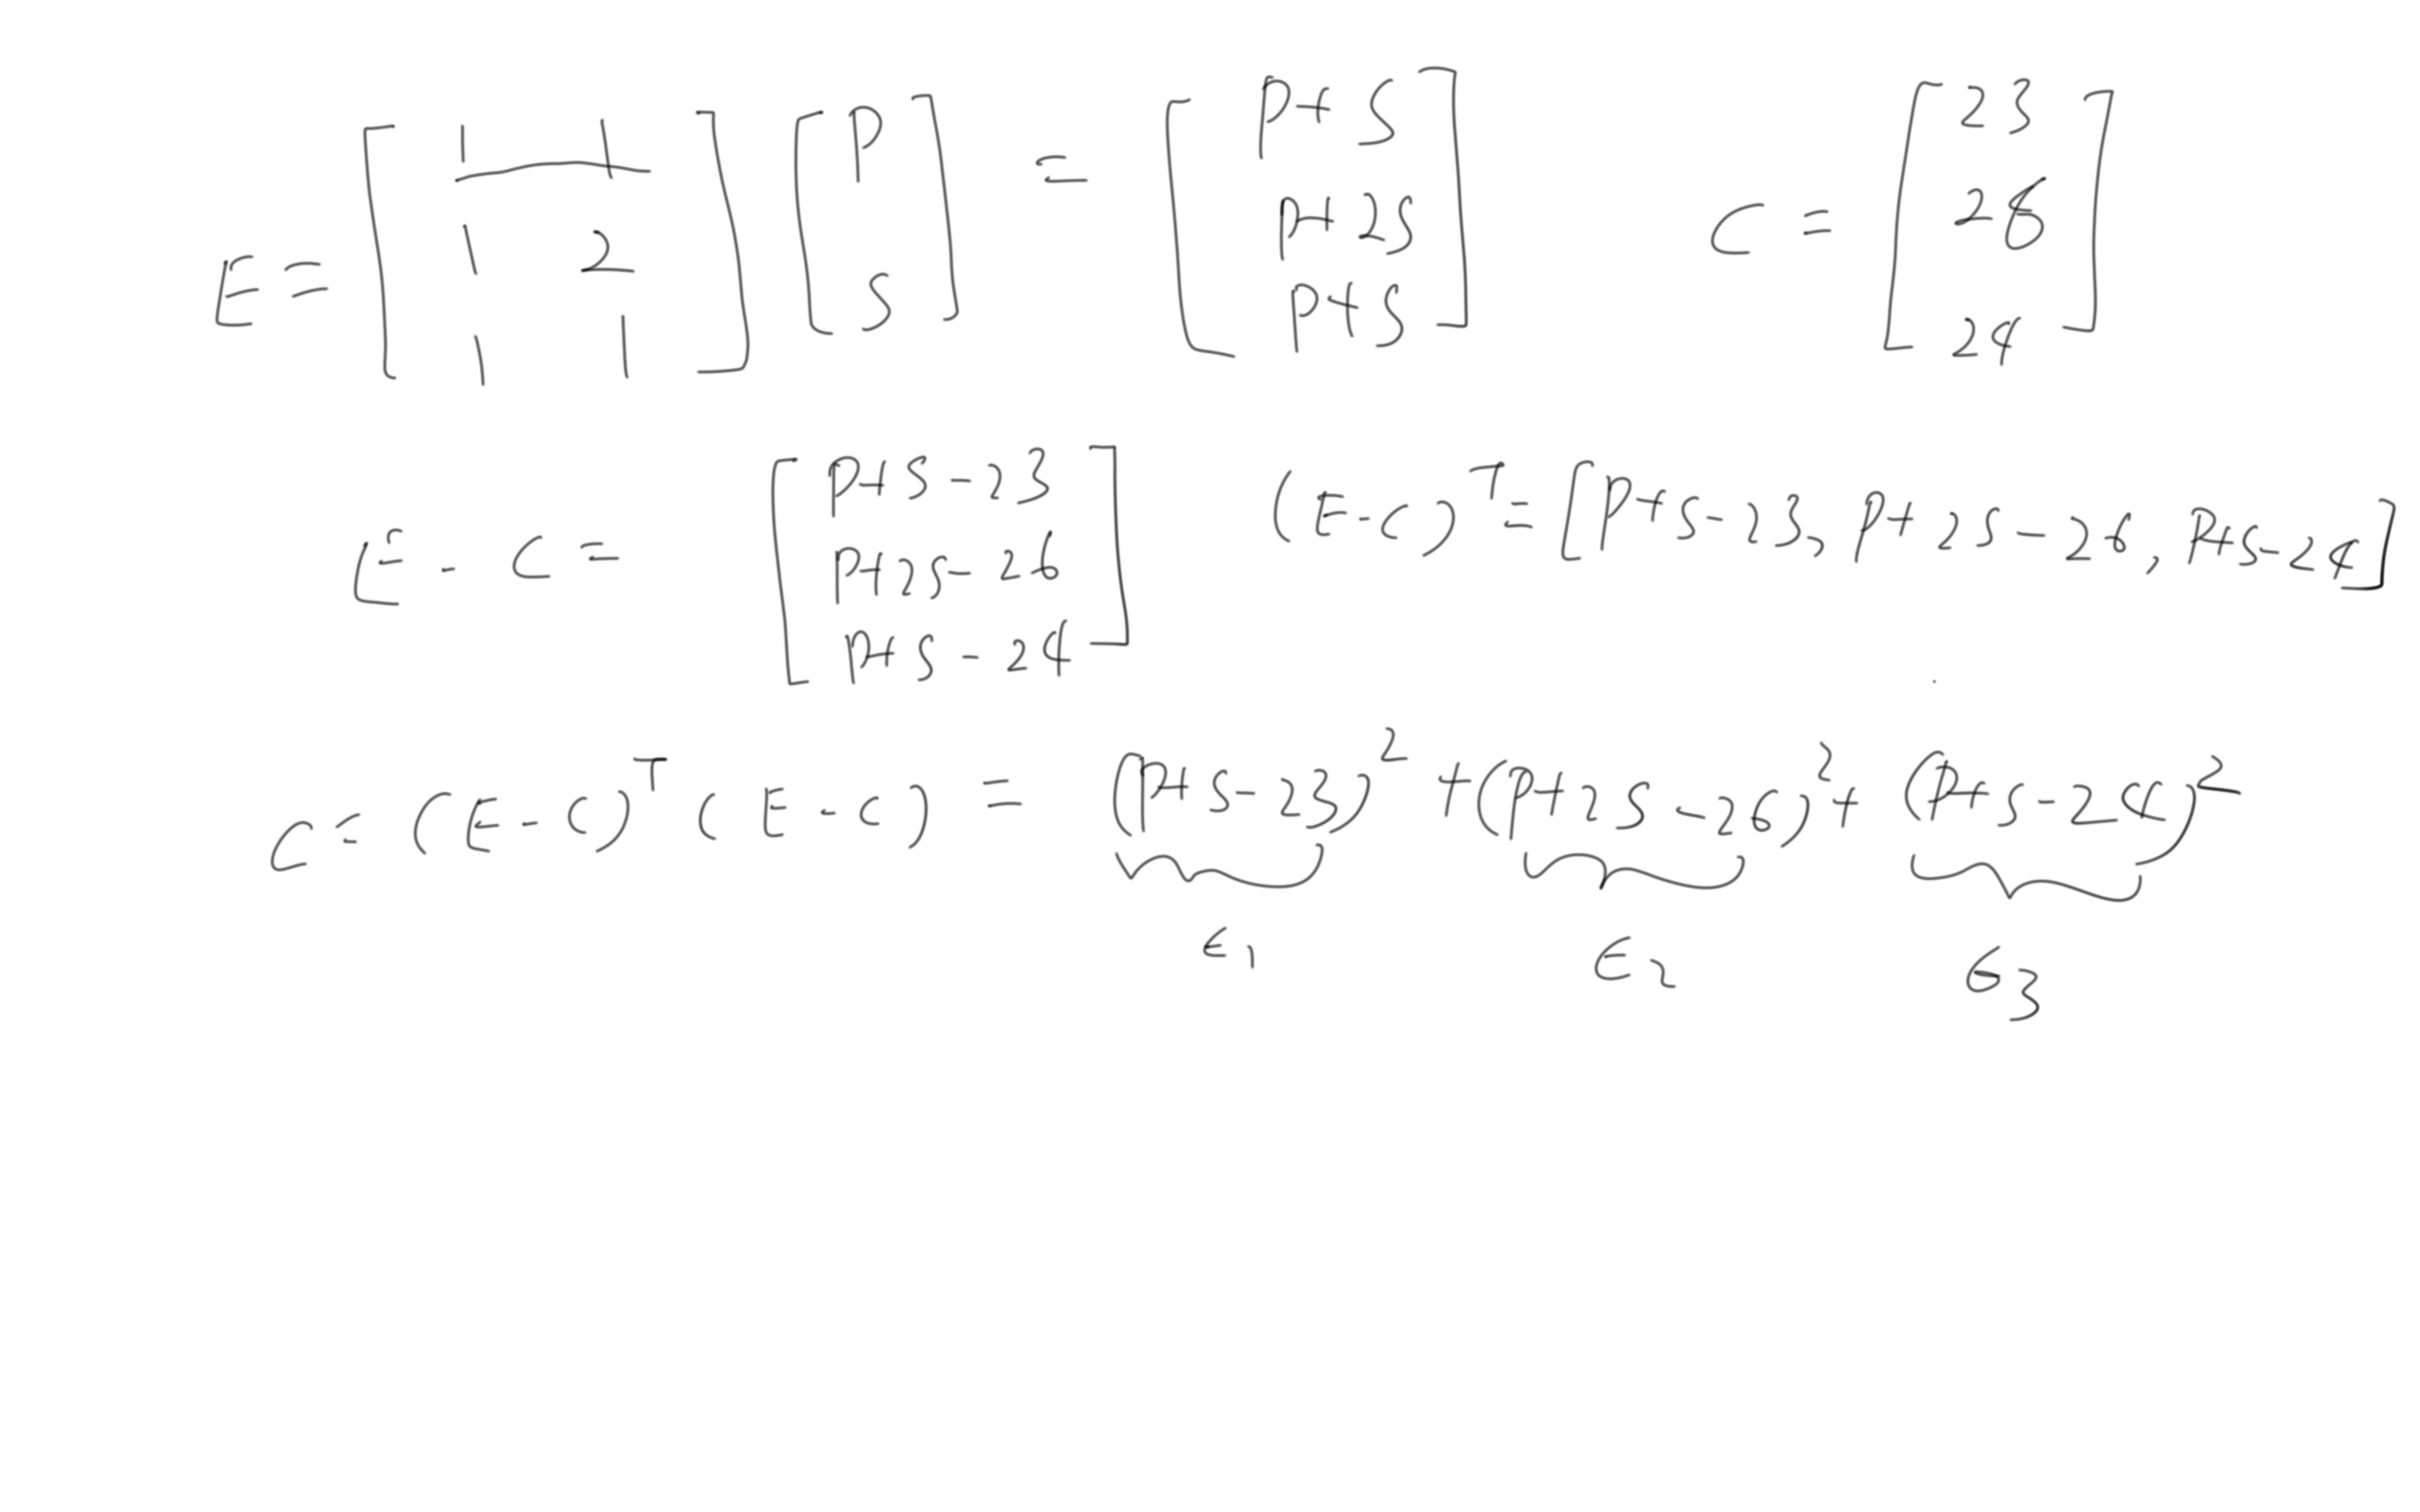 E = [ 1 1 ; 1 2 ; 1 1 ] [ P ; S ] = [ P+S ; P+2S ; P+S ] C = [ 23 ; 26 ; 24 ]
E - C = [ P+S-23 ; P+2S-26 ; P+S-24 ] (E-C)^T = [P+S-23, P+2S-26, P+S-24]
C = (E-C)^T (E-C) = (P+S-23)^2 + (P+2S-26)^2 + (P+S-24)^2
ϵ₁ ϵ₂ ϵ₃